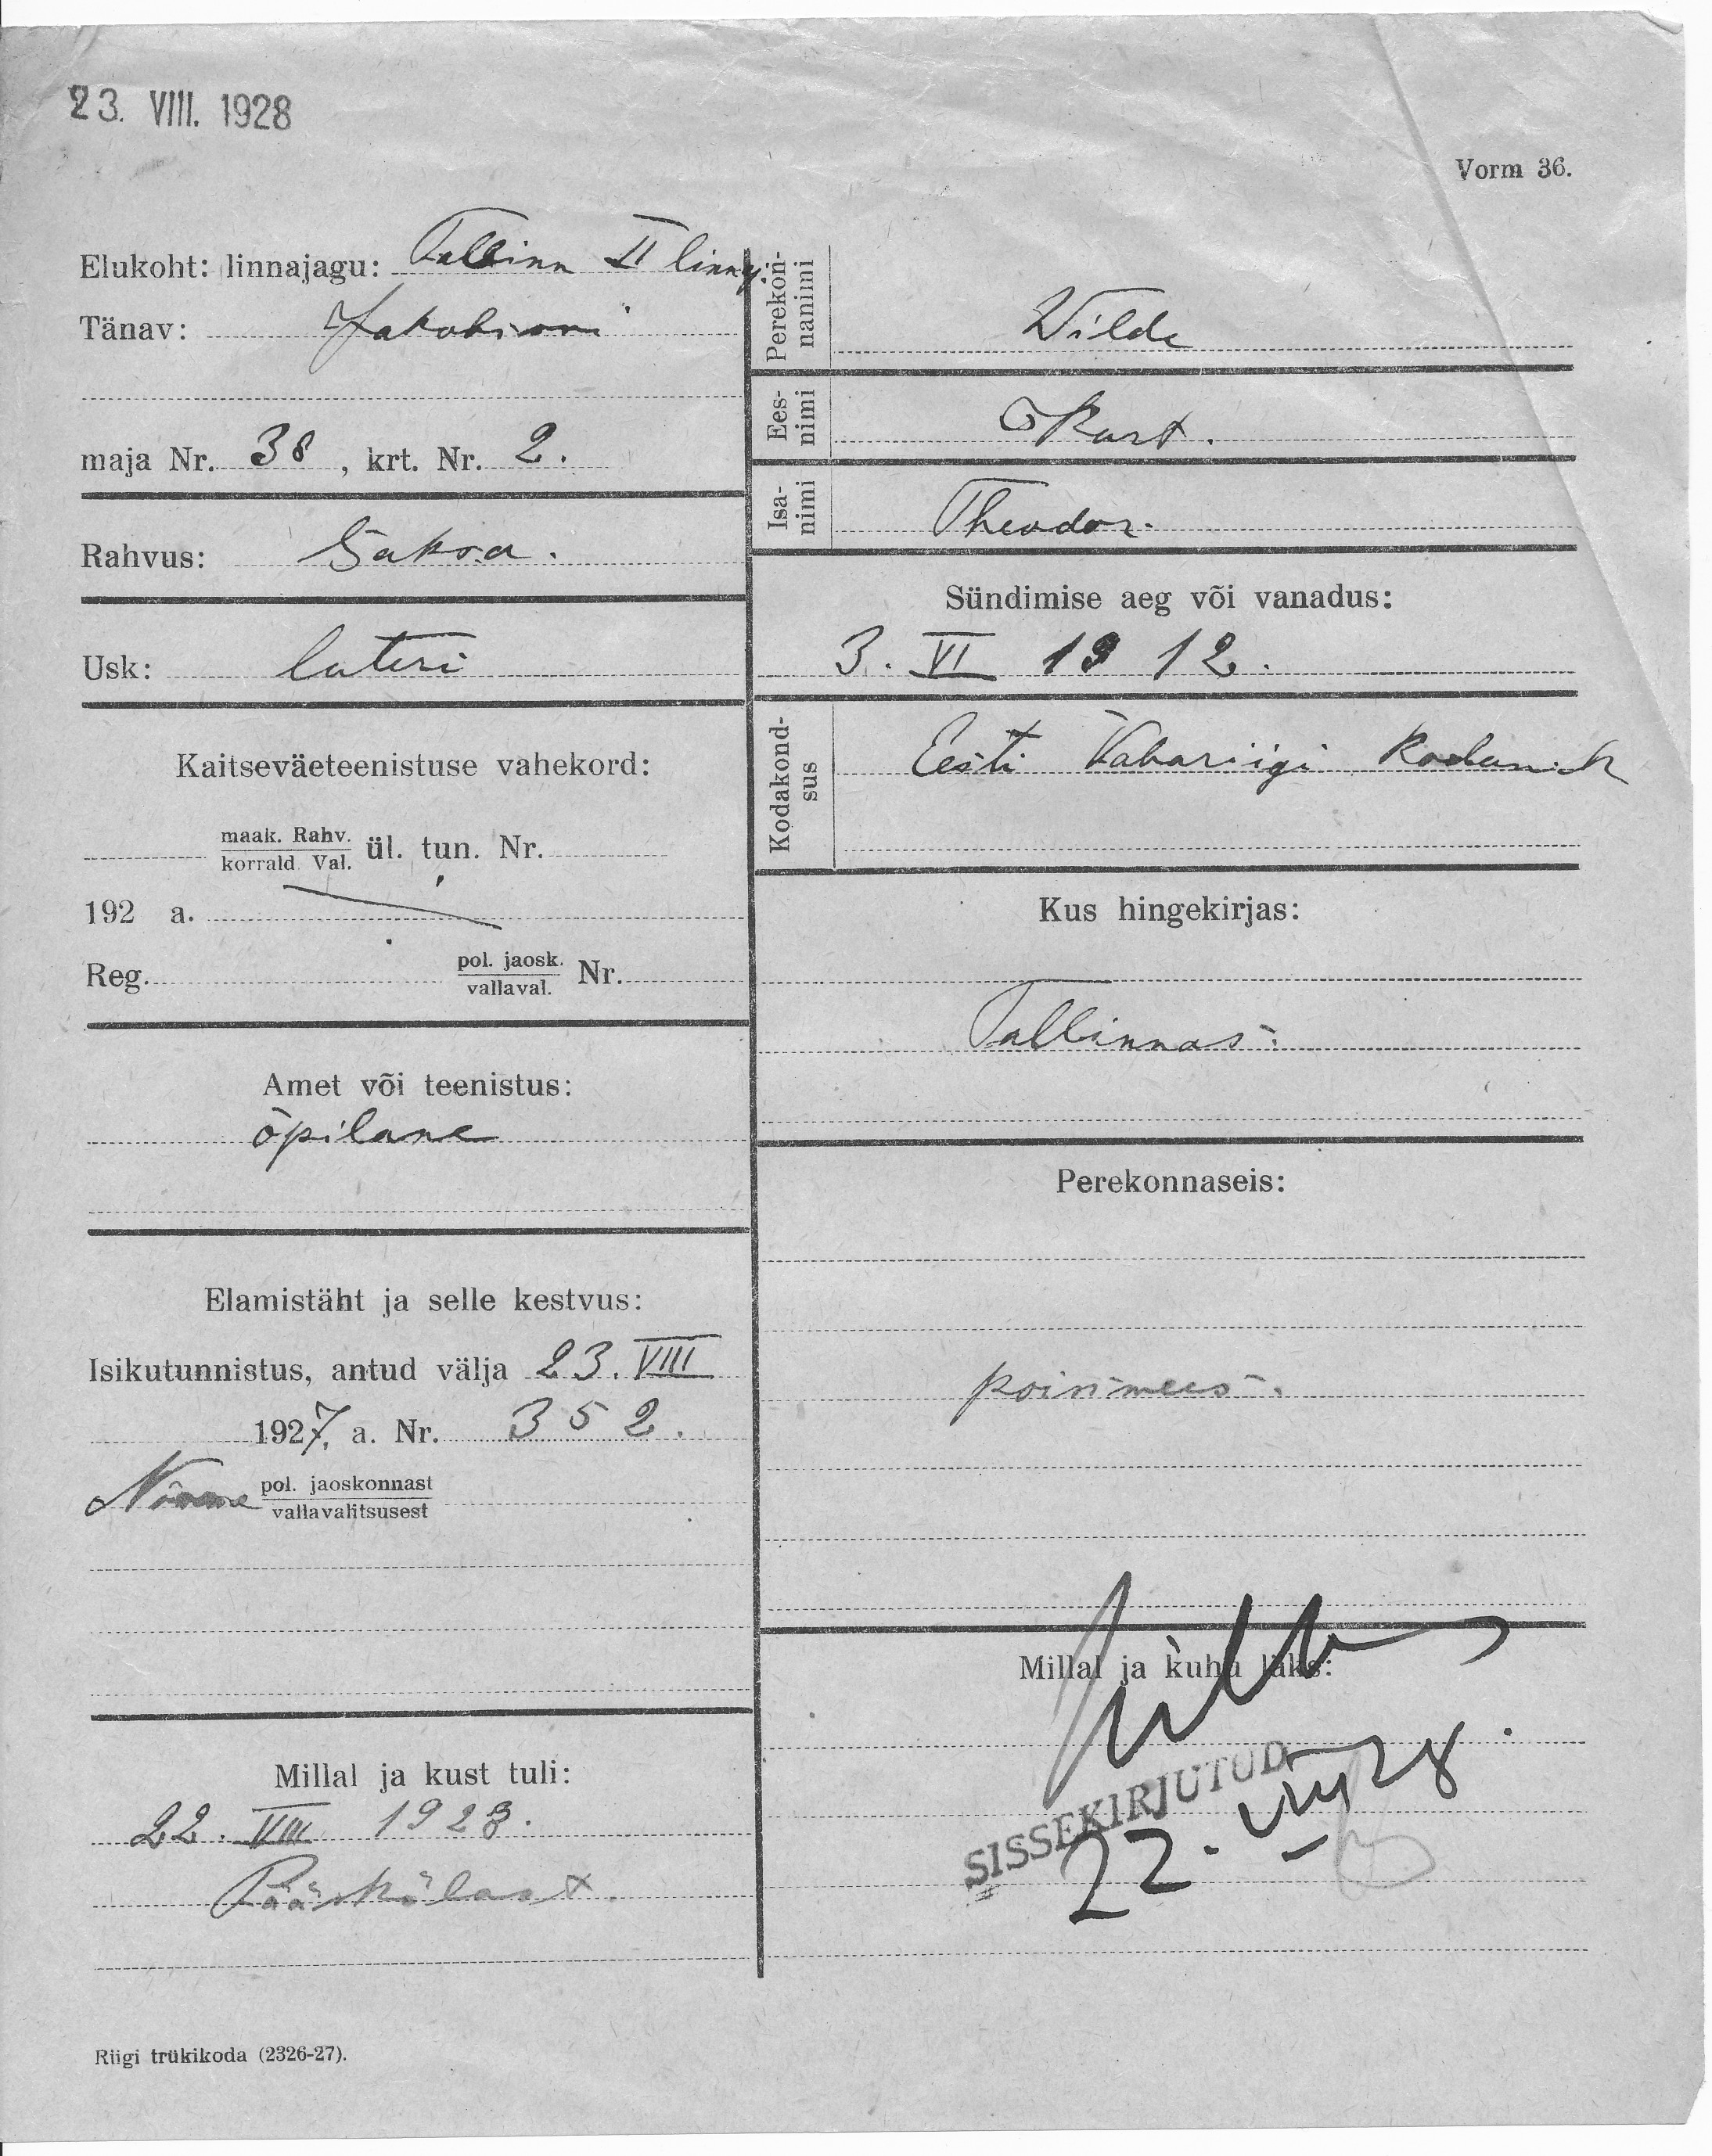 23. VIII. 1928
Vorm 36.
Elukoht: linnajagu: Tallinn II linnaj.
Tänav: Jakobsoni
maja Nr. 38, krt. Nr. 2.
Rahvus: Saksa.
Usk: luteri
Kaitseväeteenistuse vahekord:
maak. Rahv.
korrald. Val. ül. tun. Nr.
192 a.
Reg. pol. jaosk.
vallaval. Nr.
Amet või teenistus:
õpilane
Elamistäht ja selle kestvus:
Isikutunnistus, antud välja 23. VIII
1927. a. Nr. 352.
Nõmme pol. jaoskonnast
vallavalitsusest
Millal ja kust tuli:
22. VIII 1928.
Pääskülast.
Riigi trükikoda (2326-27).
Perekon-
nanimi
Wilde
Ees-
nimi
Kurt.
Isa-
nimi
Theodor.
Sündimise aeg või vanadus:
3. VI 1912.
Kodakond-
sus
Eesti Vabariigi kodanik
Kus hingekirjas:
Tallinnas.
Perekonnaseis:
poissmees.
Millal ja kuhu läks:
SISSEKIRJUTUD
22. VIII 28.